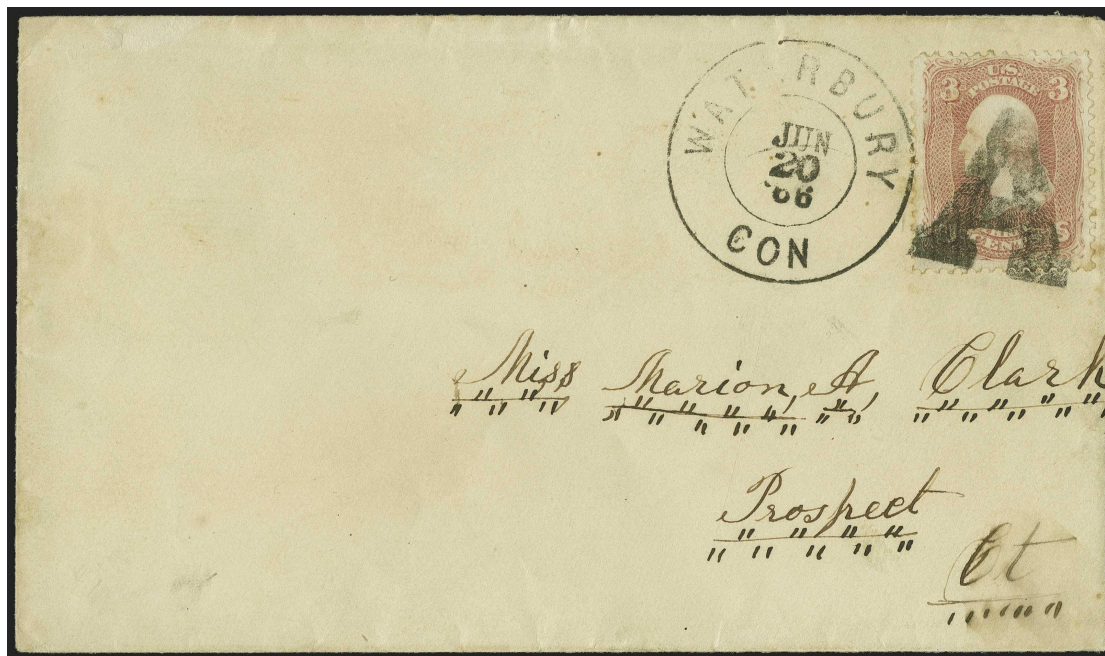 WATERBURY
JUN
20
'66
CON
3 U.S. POSTAGE 3
CENTS
Miss Marion, A, Clark
Prospect
Ct